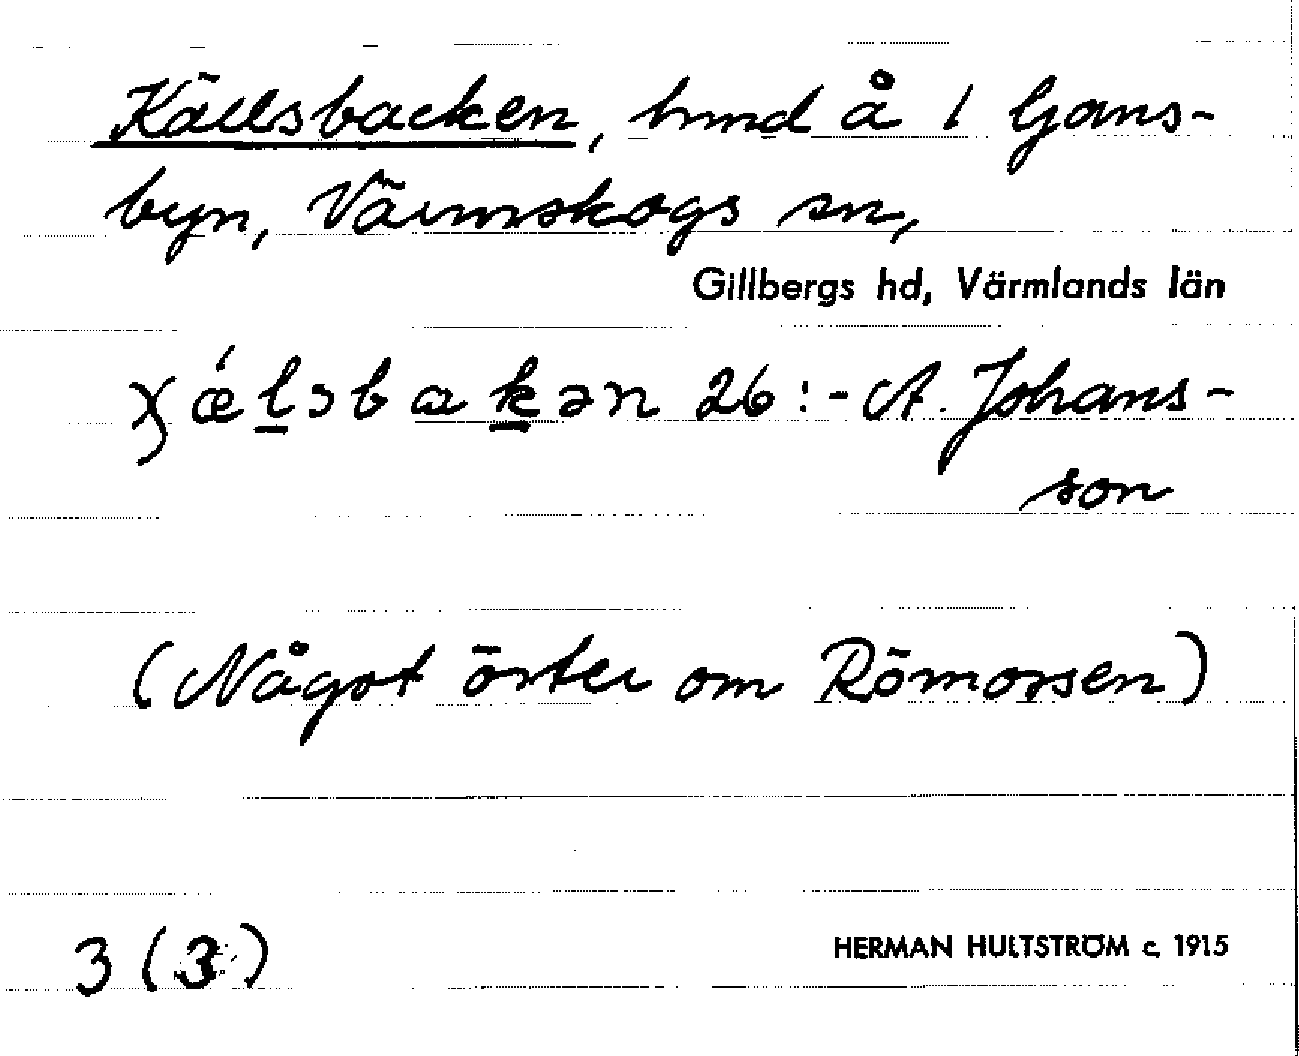 Källsbacken, hmd å 1 Gans-
byn, Värmskogs sn,
Gillbergs hd, Värmlands län
ɣǽlsbakən 26:- A. Johans-
son
(Något öster om Römossen)
3 (3)
HERMAN HULTSTRÖM c. 1915